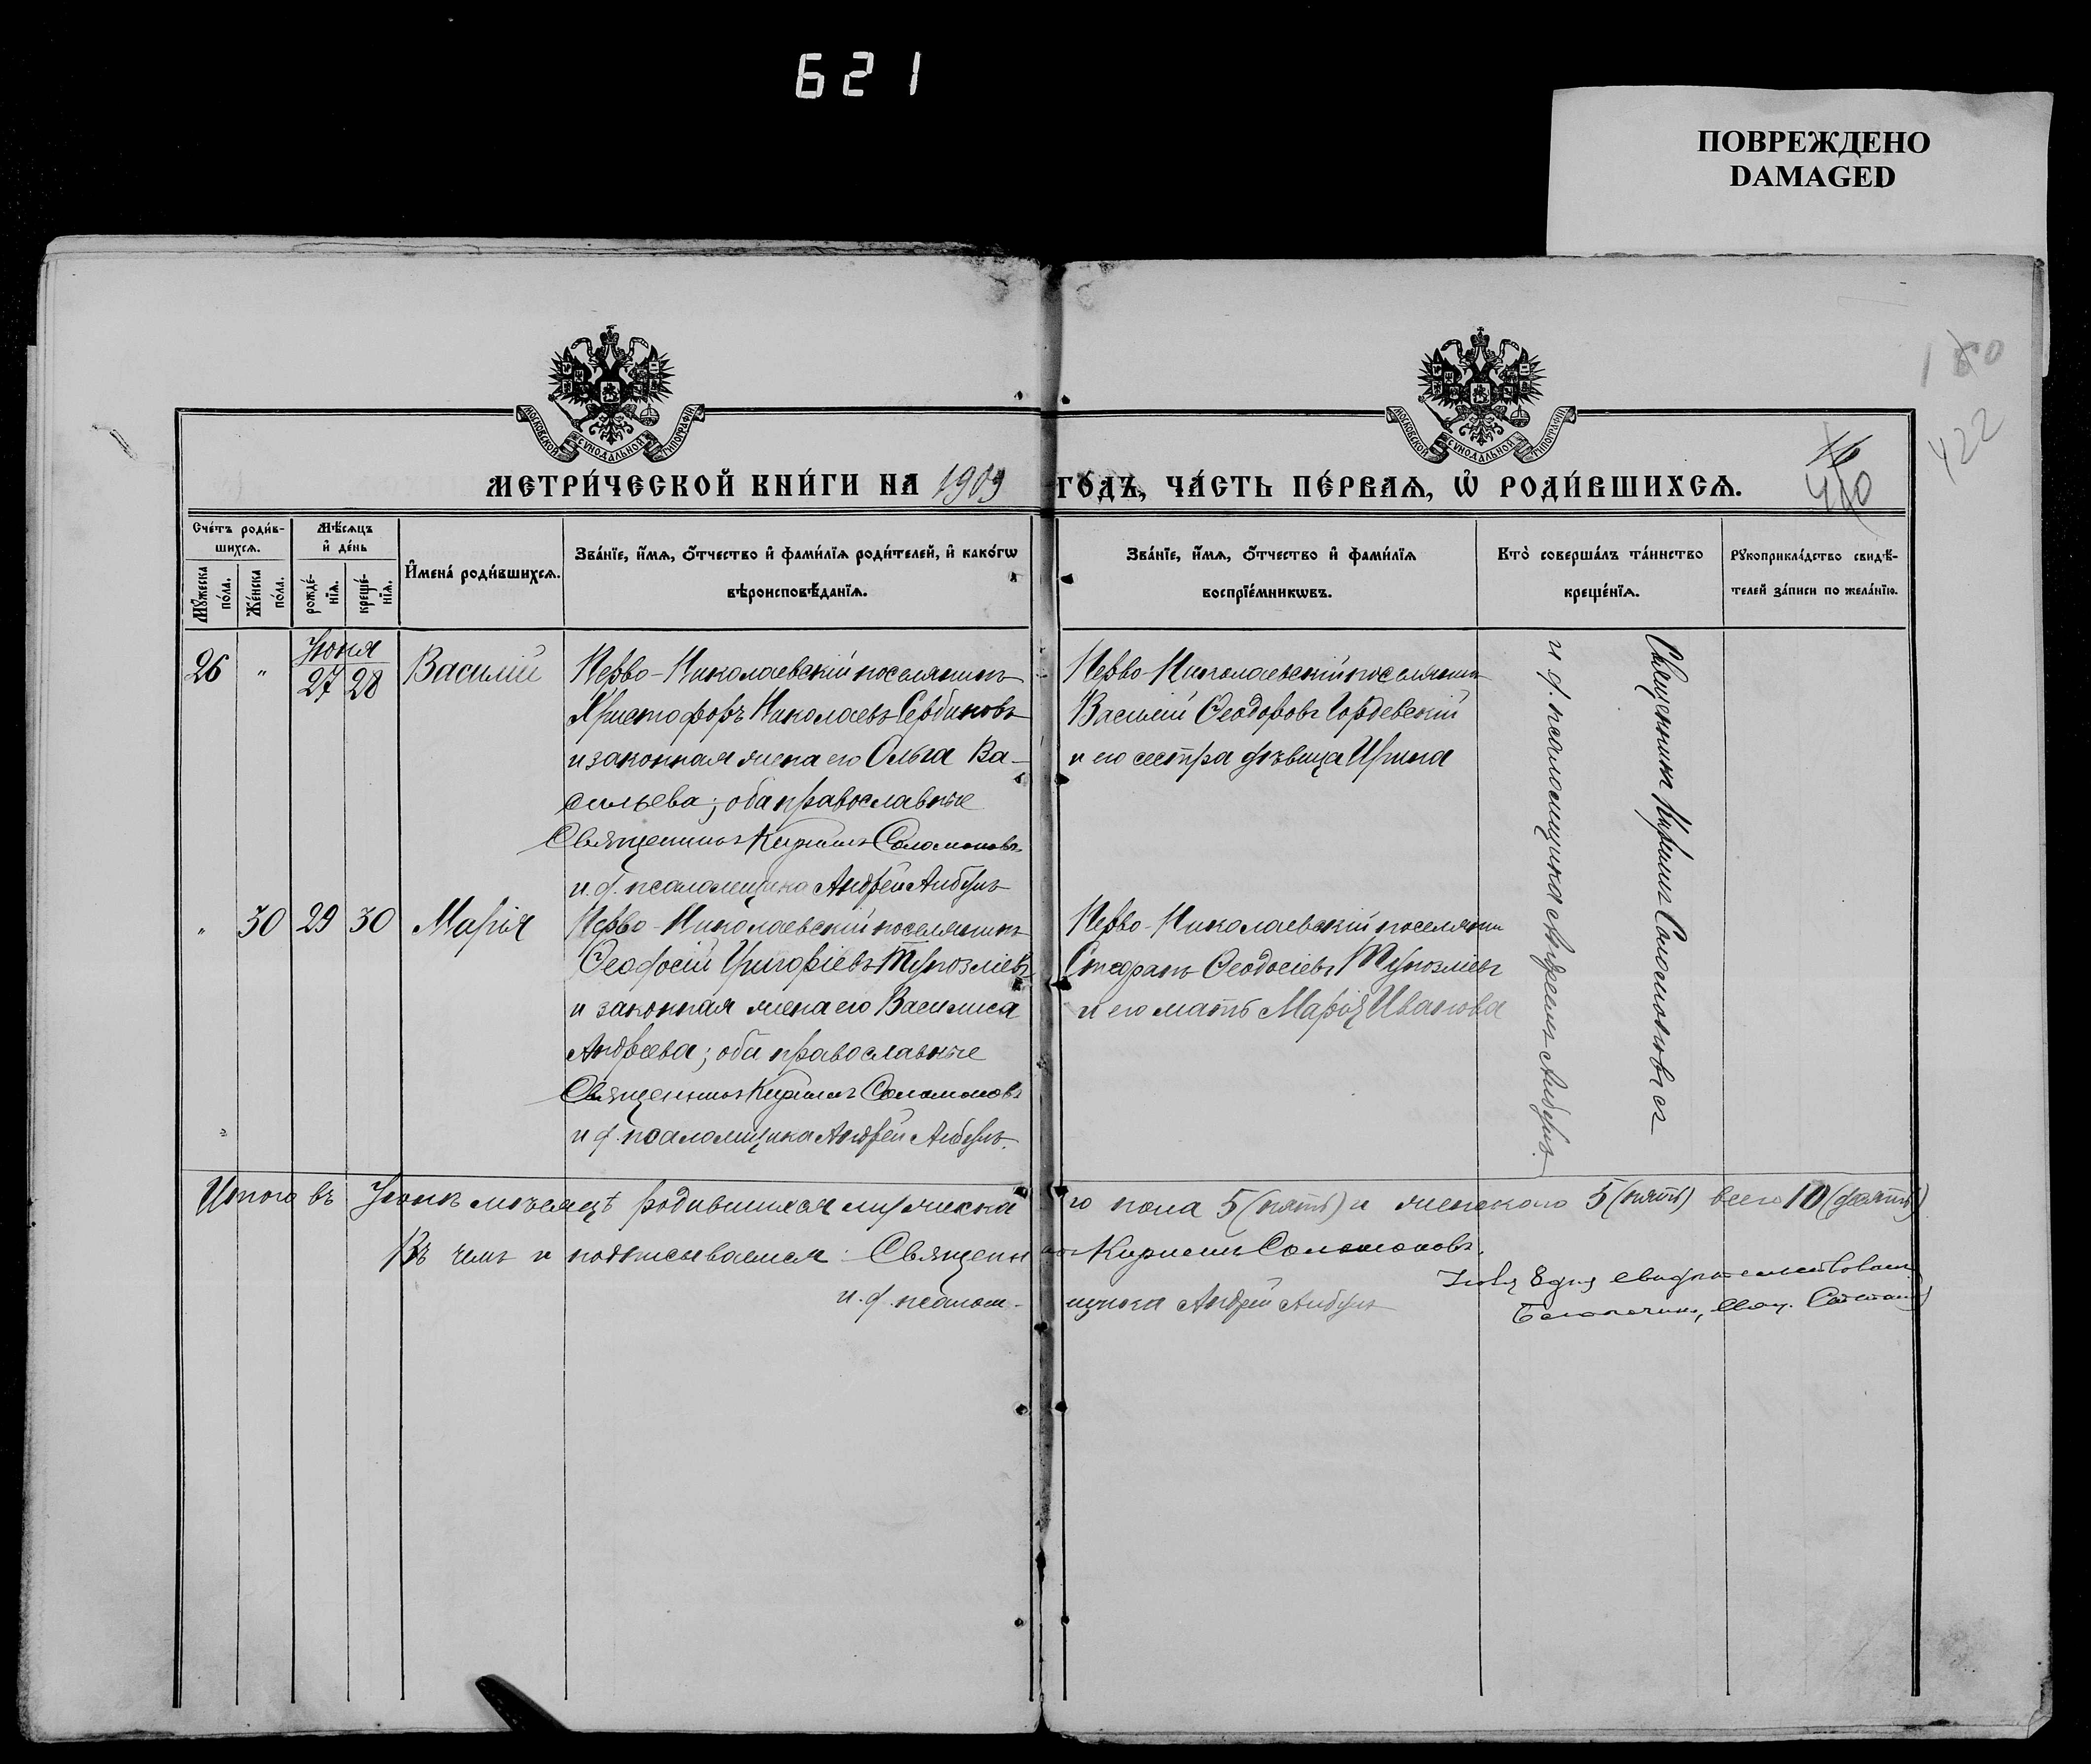 621
ПОВРЕЖДЕНО
DAMAGED
422
МОСКОВСКОЙ СѴНОДАЛЬНОЙ ТИПОГРАФІИ
МОСКОВСКОЙ СѴНОДАЛЬНОЙ ТИПОГРАФІИ
МЕТРИ́ЧЕСКОЙ КНИ́ГИ НА 1909 ГО́ДЪ, ЧА́СТЬ ПЕ́РВАѦ, Ѡ҆ РОДИ́ВШИХСѦ.
Сче́тъ роди́в-
шихсѧ.
Мꙋ́жеска по́ла.
Же́нска по́ла.
Мѣ́сѧцъ
и҆ де́нь
рожде́-
нїѧ.
креще́-
нїѧ.
И҆мена́ роди́вшихсѧ.
Зва́нїе, и҆́мѧ, о҆́тчество и҆ фами́лїѧ роди́телей, и҆ како́гѡ
вѣроисповѣ́данїѧ.
Зва́нїе, и҆́мѧ, о҆́тчество и҆ фами́лїѧ
воспрїе́мникѡвъ.
Кто̀ соверша́лъ та́инство
креще́нїѧ.
Рꙋкоприкла́дство свидѣ́-
телей за́писи по жела́нїю.
Іюня
26 " 27 28 Василій
Перво-Николаевскій поселянинъ
Христофоръ Николаевъ Сердиновъ
и законная жена его Ольга Ва-
сильева; оба православные
Священникъ Кириллъ Соломоновъ
и.д. псаломщика Андрей Анбуль
Перво-Николаевскій поселянинъ
Василій Ѳеодоровъ Гордевскій
и его сестра дѣвица Ирина
Священникъ Кириллъ Соломоновъ съ
и.д. псаломщика Андреемъ Анбуль.
" 30 29 30 Марія
Перво-Николаевскій поселянинъ
Ѳеодосій Григоріевъ
и законная жена его Василиса
Андреева; оба православные
Священникъ Кириллъ Соломоновъ
и д. псаломщика Андрей Анбуль.
Перво-Николаевскій поселянин
Стефанъ Ѳеодосіевъ
и его мать Марія Иванова
Итого въ Іюнѣ мѣсяцѣ родившихся мужска го пола 5 (пять) и женского 5 (пять) всего 10 (десять)
Въ чемъ и подписываемся: Священникъ Кириллъ Соломоновъ.
и.д. псалом- щика Андрей Анбуль